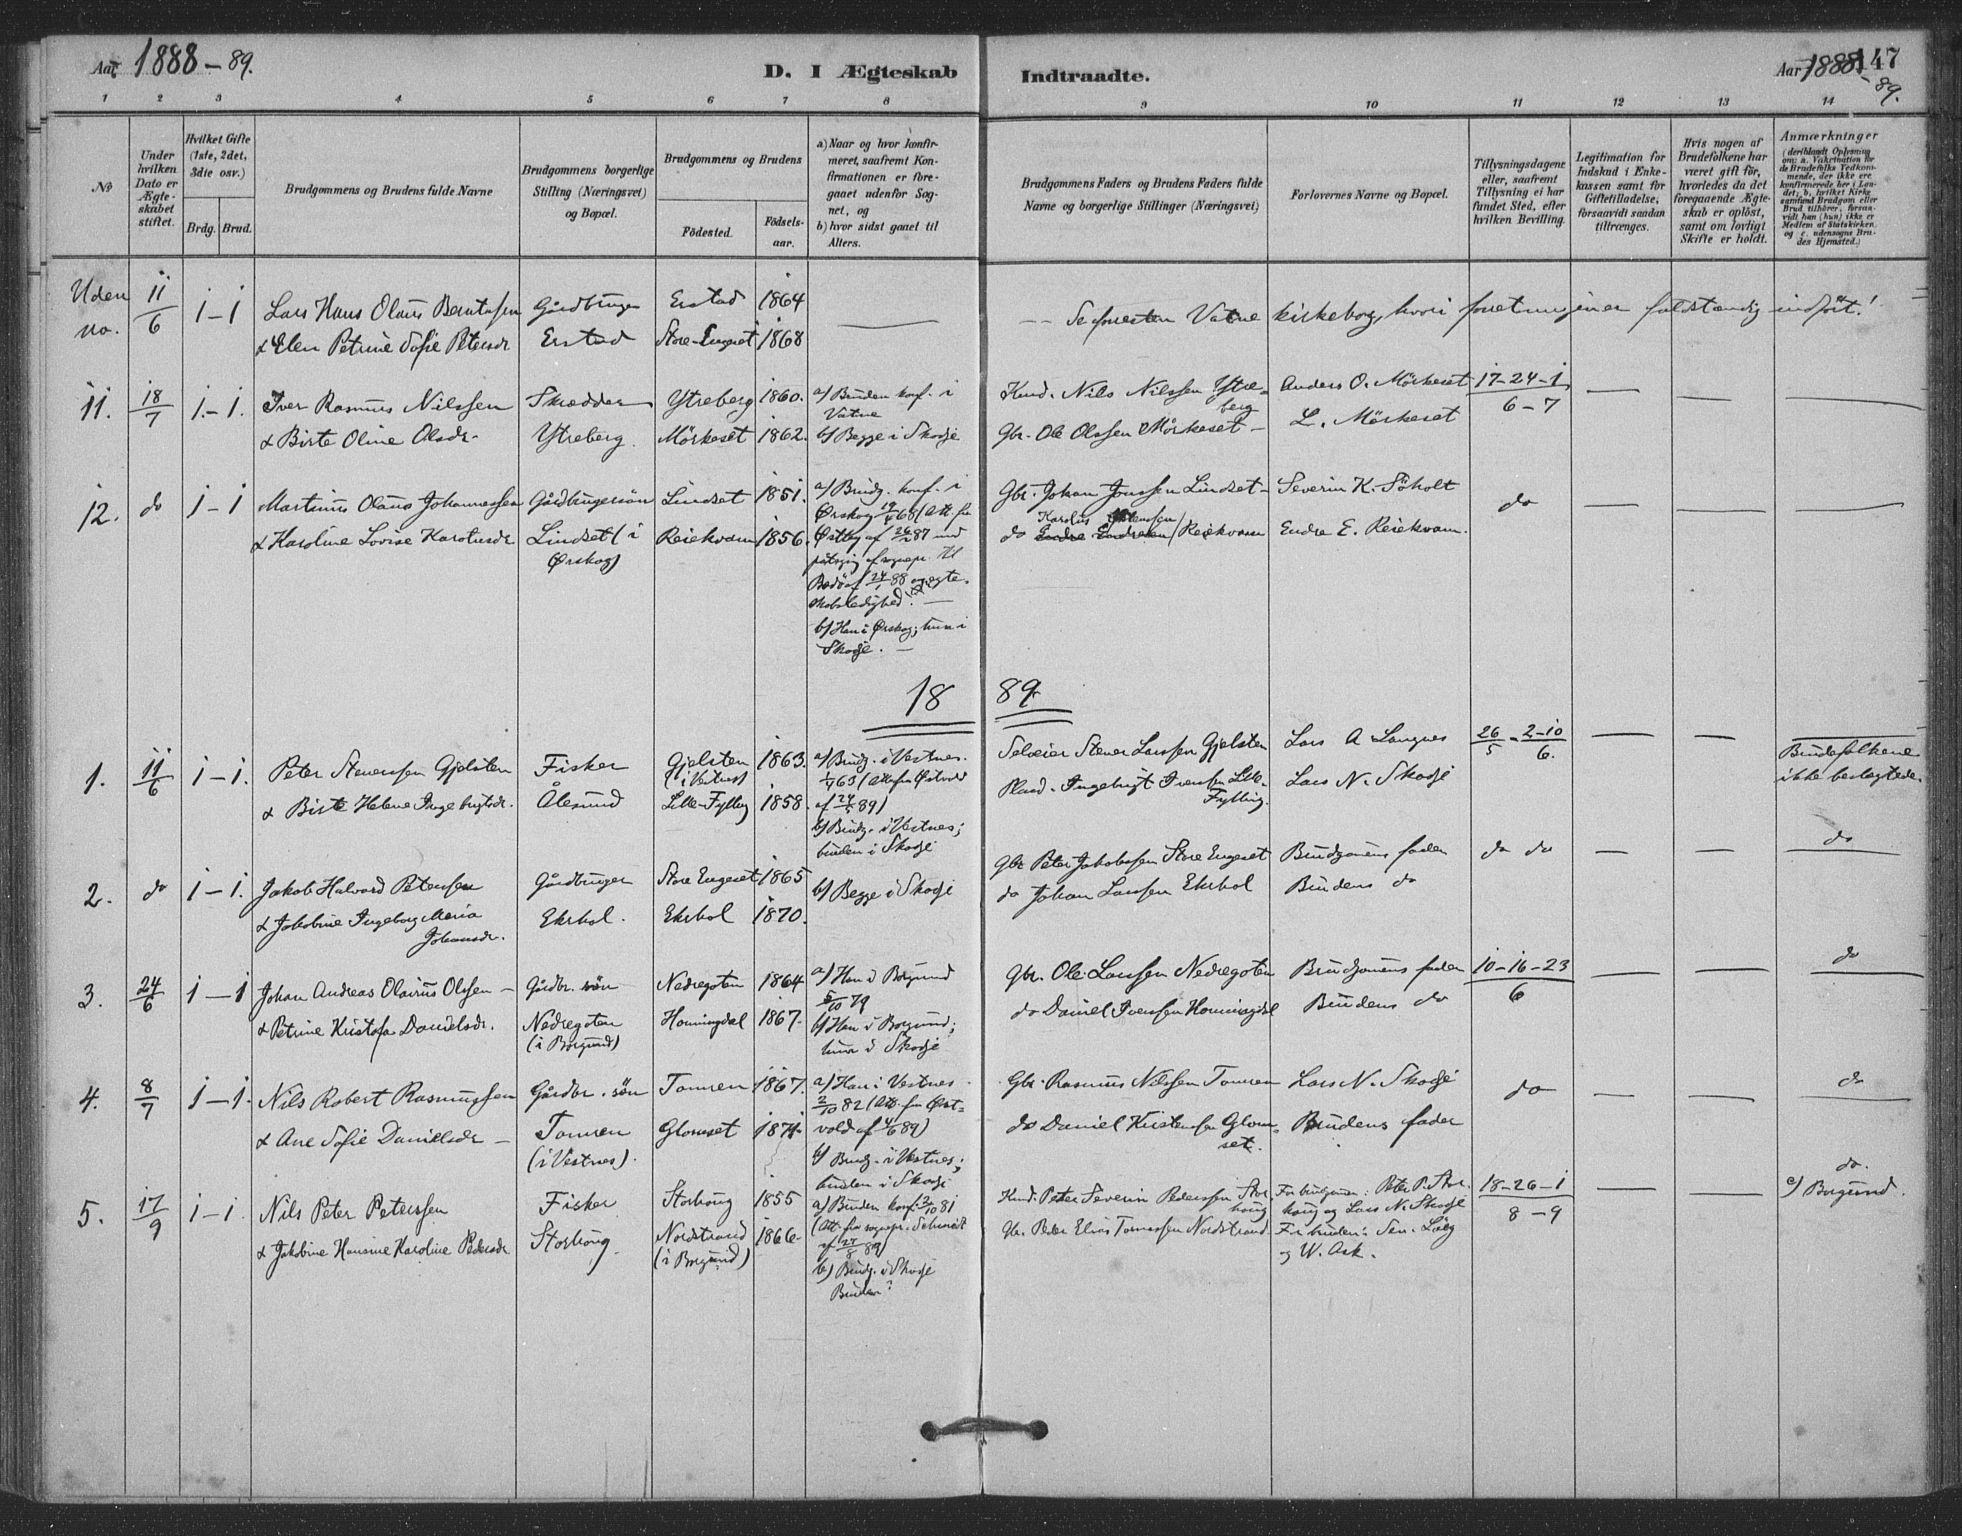 Aar 1888 – 89.
D. I Ægteskab Indtraadte.
Aar 1888 147
- 89.
1 2 3 4 5 6 7 8 9 10 11 12 13 14
No
Under hvilken Dato er Ægteskabet stiftet.
Hvilket Gifte (1ste, 2det, 3die osv.)
Brdg. Brud.
Brudgommens og Brudens fulde Navne
Brudgommens borgerlige Stilling (Næringsvei) og Bopæl.
Brudgommens og Brudens
Fødested.
Fødsels-aar.
a) Naar og hvor konfirmeret, saafremt Konfirmationen er foregaaet udenfor Sognet, og
b) hvor sidst gaaet til Alters.
Brudgommens Faders og Brudens Faders fulde Navne og borgerlige Stillinger (Næringsvei)
Forlovernes Navne og Bopæl.
Tillysningsdagene eller, saafremt Tillysning ei har fundet Sted, efter hvilken Bevilling.
Legitimation for Indskud i Enkekassen samt for Giftetilladelse, forsaavidt saadan tiltrænges.
Hvis nogen af Brudefolkene har været gift før, hvorledes da det foregaaende Ægteskab er opløst, samt om lovligt Skifte er holdt.
Anmærkninger
(deriblandt Oplysning om: a. Vakcination for de Brudefolks Vedkommende, der ikke ere konfirmerede her i Landet; b. hvilket Kirkesamfund Brudgom eller Brud tilhører, forsaavidt han (hun) ikke er Medlem af Statskirken, og c. udensogns Brudes Hjemsted.)
Uden no. 11/6 1 – 1 Lars Hans Olaus Berntssen Gårdbruger Erstad 1864 — Se forresten Vatne kirkebog, hvori forretningen er fuldstændig indført!
& Elen Petrine Sofie Petersdr Erstad Store-Engeset 1868
11. 18/7 1. – 1. Iver Rasmus Nilssen Skrædder Ytreberg 1860. a) Bruden konf. i Vatne Kmd. Nils Nilssen Ytreberg Anders O. Mörkeset 17-24-1
& Birte Oline Olsdr. Ytreberg. Mörkeset 1862. b) Begge i Skodje Gbr. Ole Olssen Mörkeset – L. Mörkeset 6 – 7
12. do 1 – 1 Martinus Olaus Johannessen Gårdbrugersön Lindset 1851. a) Brudg. konf. i Gbr. Johan Jonssen Lindset – Severin K. Söholt do
& Karoline Lovise Karolusdr Lindset (i Ørskog) Reiekvam 1856. Ørskog 68 (Att. fra do Karolus / Reiekvam Endre E. Reiekvam.
af 26/2 87 med
påtegn. af sognepr. til
Bodö af 24/1 88 og ægteskabsledighed.
b) Han i Ørskog; hun i Skodje.
18 89.
1. 11/6 1 – 1. Peter Stenerssen Gjelsten Fisker Gjelsten (i Vestnes) 1863. a) Brudg. i Vestnes. Selveier Stener Larssen Gjelsten Lars A Langnes 26/5 - 2-10/6. Brudefolkene ikke beslægtede.
& Birte Helene Ingebrigtsdr. Ålesund Lille-Fylling 1858. af 24/5 89) Pland. Ingebrigt Iverssen Lille-Fylling. Lars N. Skodje
b) Brudg. i Vestnes; bruden i Skodje
2. do 1 – 1. Jakob Halvard Peterssen Gårdbruger Store Engeset 1865 b) Begge i Skodje Gbr. Peter Jakobssen Store Engeset Brudgomens fader do do do
& Jakobine Ingeborg Maria Johansdr. Ekrhol. Ekrhol 1870. do Johan Larssen Ekrhol Brudens do
3. 24/6 1 – 1 Johan Andreas Olairus Olssen – Gårdbr. sön Nedregoten 1864 a) Han i Borgund Gbr. Ole Larssen Nedregoten Brudgomens fader 10-16-23 do
& Petrine Kristofa Danielsdr. Nedregoten (i Borgund) Honningdal 1867. 5/10 79 do Daniel Iverssen Honningdal Brudens do 6
b) Han i Borgund; hun i Skodje
4. 8/7 1 – 1. Nils Robert Rasmussen Gårdbr. sön Tomren 1867. a) Han i Vestnes Gbr. Rasmus Nilssen Tomren Lars N. Skodje do do
& Ane Sofie Danielsdr – Tomren (i Vestnes). Glomset 1871. 2/10 82 (Att. fra Østvold af 4/6 89) do Daniel Kristenssen Glomset. Brudens fader
b) Brudg. i Vestnes; bruden i Skodje
5. 17/9 1 – 1. Nils Peter Peterssen Fisker Storhaug 1855 a) Bruden konf. 2/10 81 Kmd. Peter Severin Pederssen Storhaug For brudgomen: Peter P. Storhaug og Lars N. Skodje 18-26-1 do. c) Borgund.
& Jakobine Hansine Karoline Pedersdr Storhaug. Nordstrand (i Borgund) 1866. (Att. fra sognepr. Schmidt af 27/8 89) Gbr. Peder Elias Tomassen Nordstrand. For bruden: Sev. og W. Ask. 8 – 9
b) Brudg. i Skodje Bruden?